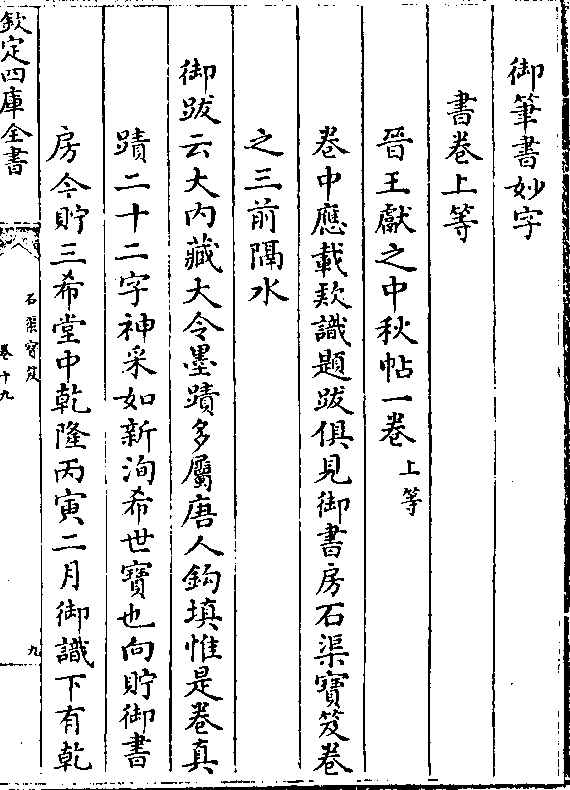 御筆書妙字
書卷上等
晉王獻之中秋帖一卷上等
卷中應載欵識題跋俱見御書房石渠寳笈卷
之三前隔水
御跋云大内藏大令墨蹟多屬唐人鈎填惟是卷真
蹟二十二字神采如新洵希世寳也向貯御書
房今貯三希堂中乾隆丙寅二月御識下有乾
欽定四庫全書
石渠寳笈
卷十九
九